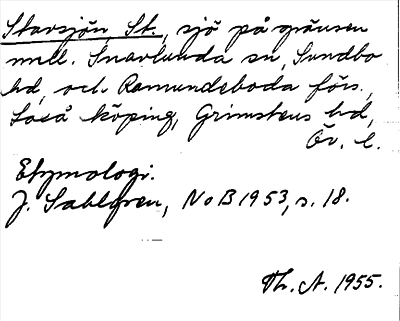 Starsjön St., sjö på gränsen
mell. Snavlunda sn, Sundbo
hd, och Ramundeboda förs.,
Laxå köping, Grimstens hd,
Ör. l.
Etymologi.
J. Sahlgren, NoB 1953, s. 18.
Th. A. 1955.